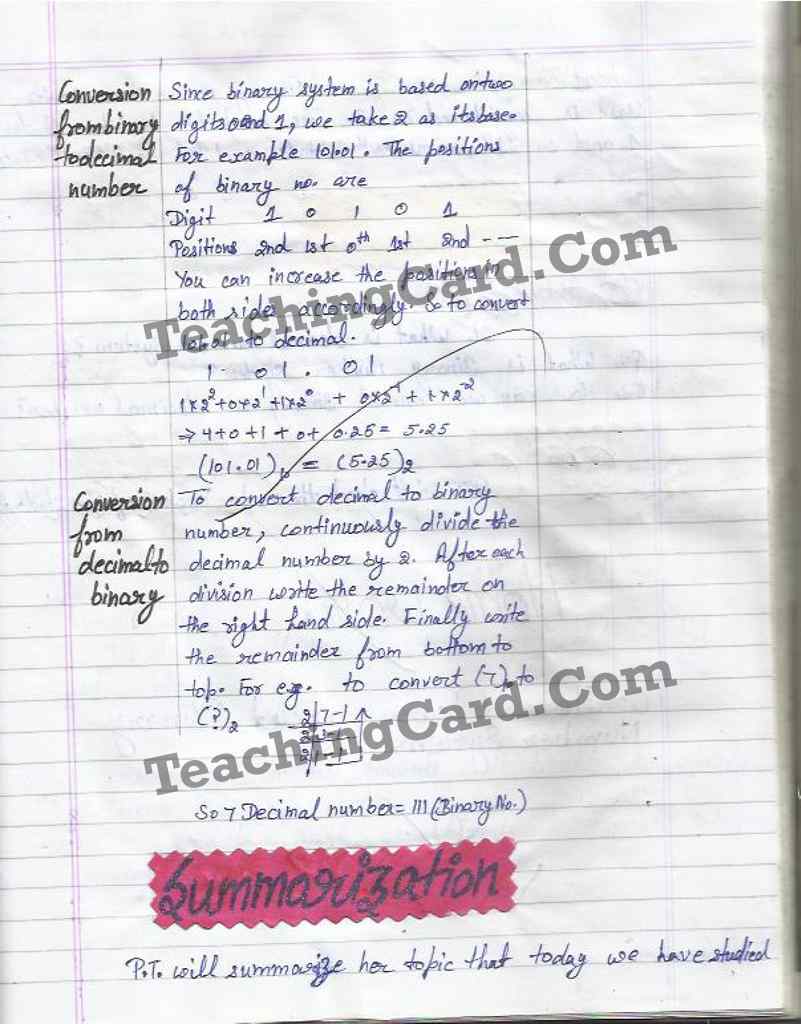 Conversion
from binary
to decimal
number
Since binary system is based on two
digits 0 and 1, we take 2 as its base.
For example 101.01. The positions
of binary no. are
Digit 1 0 1 0 1
Positions 2nd 1st 0th 1st 2nd ---
You can increase the positions in
both sides accordingly. So to convert
to decimal.
1 01 . 01
1×2² + 0×2¹ + 1×2⁰ + 0×2⁻¹ + 1×2⁻²
⇒ 4+0+1+0+ 0.25 = 5.25
(101.01) = (5.25)₂
Conversion
from
decimal to
binary
To convert decimal to binary
number, continuously divide the
decimal number by 2. After each
division write the remainder on
the right hand side. Finally write
the remainder from bottom to
top. For eg. to convert (7) to
(?)₂ 2|7-1
So 7 Decimal number = 111 (Binary No.)
Summarization
P.T. will summarize her topic that today we have studied
TeachingCard.Com
TeachingCard.Com